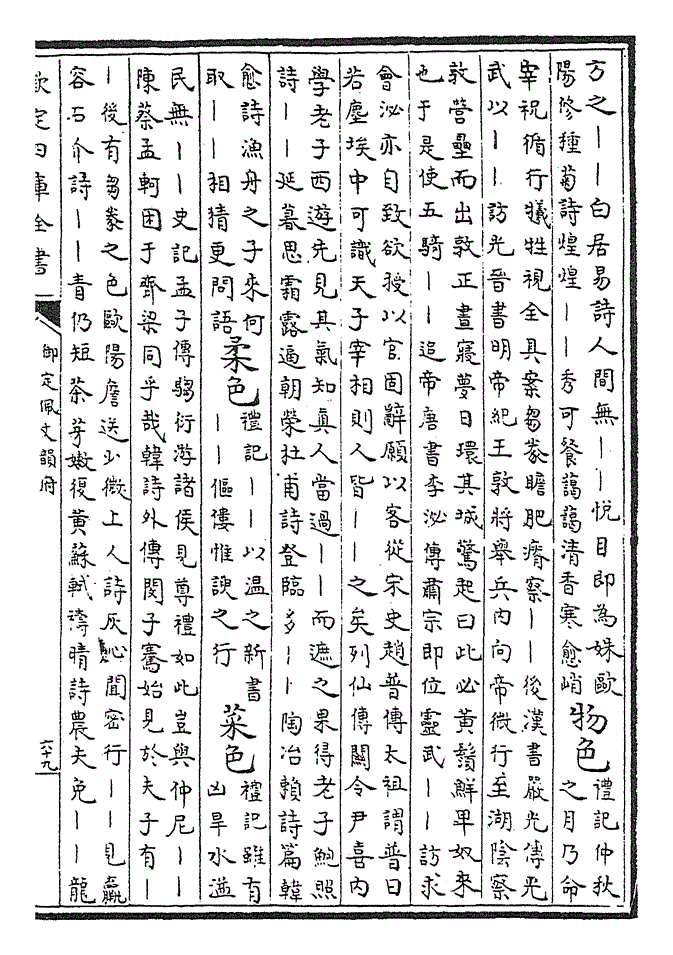 方之丨丨白居易詩人間無丨丨悅目即為姝歐
陽修種菊詩煌煌丨丨秀可餐藹藹清香寒愈峭
物色
禮記仲秋
之月乃命
宰祝循行犧牲視全具案芻豢瞻肥瘠察丨丨後漢書嚴光傳光
武以丨丨訪光晉書明帝紀王敦將舉兵內向帝微行至湖陰察
敦營壘而出敦正晝寢夢日環其城驚起曰此必黃鬚鮮卑奴來
也于是使五騎丨丨追帝唐書李泌傳肅宗即位靈武丨丨訪求
會泌亦自致欲授以官固辭願以客從宋史趙普傳太祖謂普曰
若塵埃中可識天子宰相則人皆丨丨之矣列仙傳關令尹喜內
學老子西遊先見其氣知真人當過丨丨而遮之果得老子鮑照
詩丨丨延暮思霜露逼朝榮杜甫詩登臨多丨丨陶冶賴詩篇韓
愈詩漁舟之子來何
取丨丨相猜更問語
柔色
禮記丨丨以温之新書
丨丨傴僂惟諛之行
菜色
禮記雖有
凶旱水溢
民無丨丨史記孟子傳騶衍游諸侯見尊禮如此豈與仲尼丨丨
陳蔡孟軻困于齊梁同乎哉韓詩外傳閔子騫始見於夫子有丨
丨後有芻豢之色歐陽詹送少微上人詩灰心聞密行丨丨見羸
容石介詩丨丨青仍短茶芽嫩復黃蘇軾禱晴詩農夫免丨丨龍
欽定四庫全書
御定佩文韻府
六十九